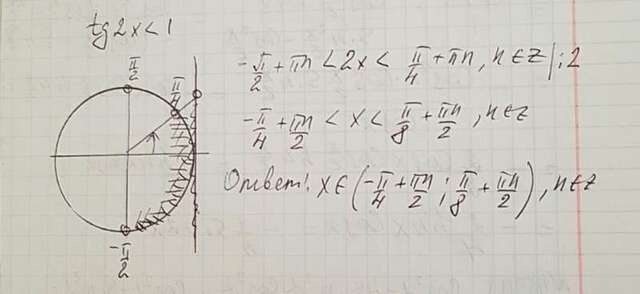 tg 2x < 1
π/2
π/4
-π/2
-π/2 + πn < 2x < π/4 + πn, n ∈ Z |:2
-π/4 + πn/2 < x < π/8 + πn/2, n ∈ Z
Ответ: x ∈ (-π/4 + πn/2; π/8 + πn/2), n ∈ Z